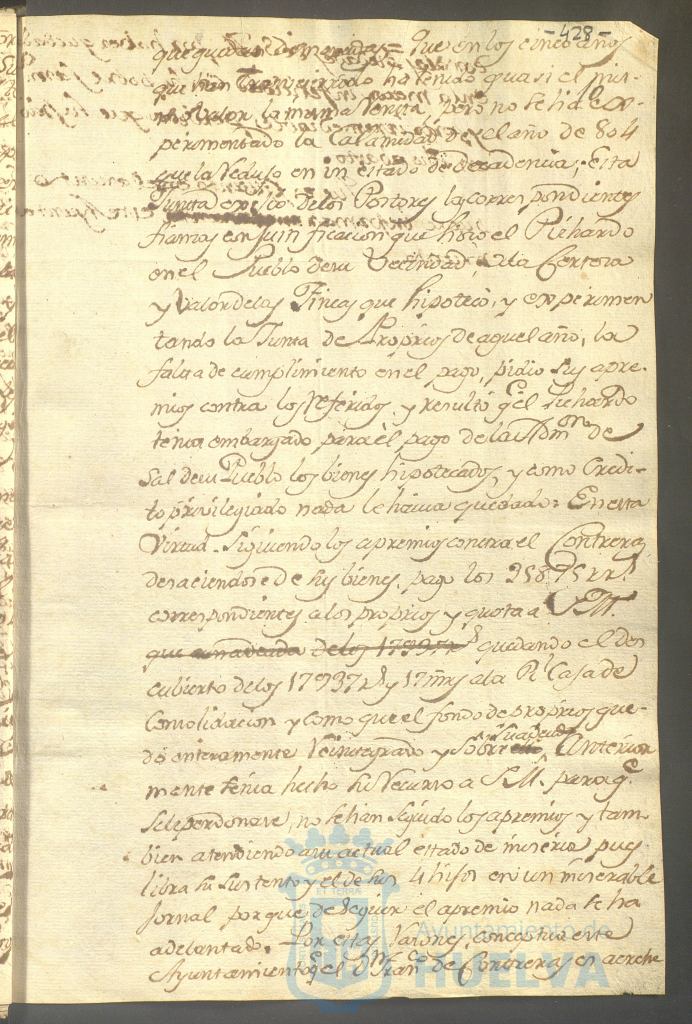 -428-
que quedan demandas = Que en los cinco años
que han transcurrido ha tenido quasi el mis-
mo valor la misma Venta, pero no se há ex-
perimentado la Calamidad del año de 804
que la redujo en un estado de decadencia; Esta
Junta exijio de los Postores las correspondientes
fianzas con justificacion que hiso el Pichardo
en el Pueblo de su Vecindad, de la Certeza
y valor de las Fincas que hipotecó, y experimen
tando la Junta de Propios de aquel año, la
falta de cumplimiento en el pago, pidio sus apre-
mios contra los referidos, y resultó qe el Pichardo
tenia embargado para el pago de la Admon de
Sal de su Pueblo los bienes hipotecados, y como Credi-
to privilegiado nada le havia quedado: En esta
Virtud, siguiendo los apremios contra el Contreras,
desaciendose de sus bienes, pago los rrs
correspondientes a los propios y quota a S.M.
que quedando el des
cubierto de los 17937 rs y 17 mrs a la Rl Caja de
Consolidacion y como que el fondo de propios que-
dó enteramente reintegrado y sobre Anterior
mente tenia hecho su recurso a S.M. para qe
se le perdonase, no se han seguido los apremios y tam-
bien atendiendo a su actual estado de miseria pues
libra su sustento y el de sus 4 hijos en un miserable
jornal porque de seguir el apremio nada se ha
adelantado. Por estas razones, conceptua este
Ayuntamiento qe el Dn Franco de Contreras es acrehe
Ayuntamiento de
HUELVA